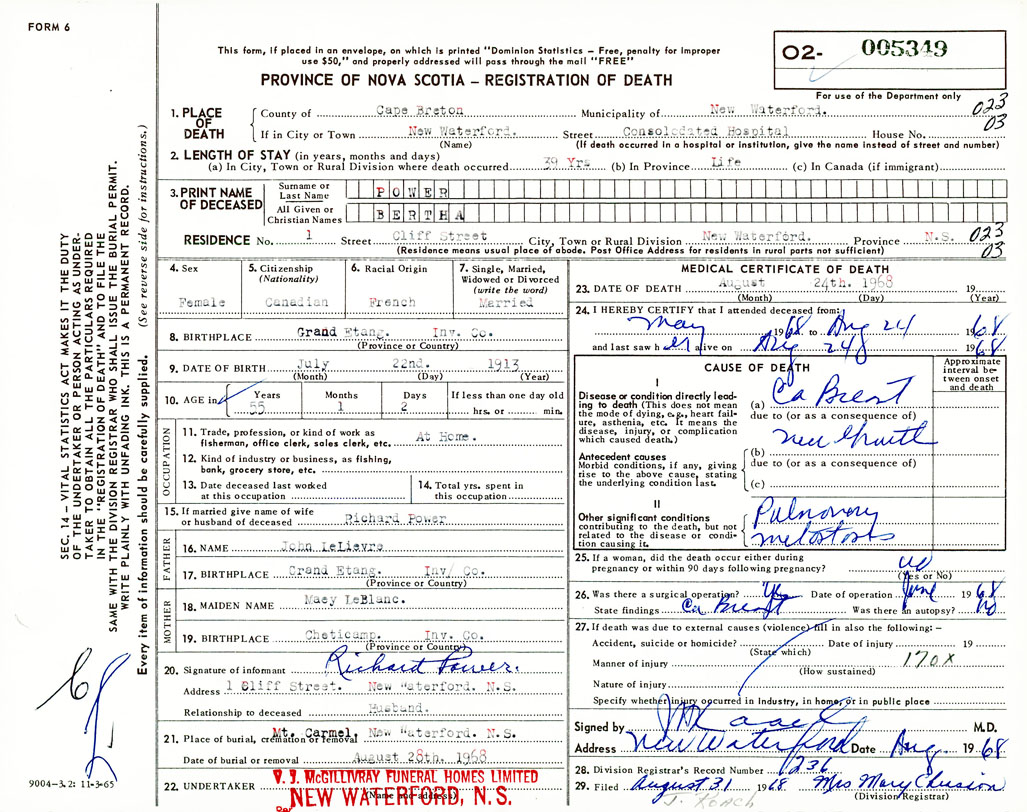 FORM 6
This form, if placed in an envelope, on which is printed "Dominion Statistics – Free, penalty for improper
use $50," and properly addressed will pass through the mail "FREE"
PROVINCE OF NOVA SCOTIA – REGISTRATION OF DEATH
O2- 005349
For use of the Department only
023
03
1. PLACE OF DEATH
County of Cape Breton Municipality of New Waterford.
If in City or Town New Waterford. Street Consolodated Hospital House No.
(Name) (If death occurred in a hospital or institution, give the name instead of street and number)
2. LENGTH OF STAY (in years, months and days)
(a) In City, Town or Rural Division where death occurred 39 Yrs (b) In Province Life (c) In Canada (if immigrant)
3. PRINT NAME OF DECEASED
Surname or Last Name POWER
All Given or Christian Names BERTHA
RESIDENCE No. 1 Street Cliff Street City, Town or Rural Division New Waterford. Province N.S. 023
(Residence means usual place of abode. Post Office Address for residents in rural parts not sufficient) 03
4. Sex
Female
5. Citizenship
(Nationality)
Canadian
6. Racial Origin
French
7. Single, Married,
Widowed or Divorced
(write the word)
Married
8. BIRTHPLACE Grand Etang. Inv. Co.
(Province or Country)
9. DATE OF BIRTH July 22nd. 1913
(Month) (Day) (Year)
10. AGE in Years Months Days If less than one day old
55 1 2 hrs. or min.
OCCUPATION
11. Trade, profession, or kind of work as
fisherman, office clerk, sales clerk, etc. At Home.
12. Kind of industry or business, as fishing,
bank, grocery store, etc.
13. Date deceased last worked
at this occupation
14. Total yrs. spent in
this occupation
15. If married give name of wife
or husband of deceased Richard Power
FATHER
16. NAME John LeLievre
17. BIRTHPLACE Grand Etang. Inv/ Co.
(Province or Country)
MOTHER
18. MAIDEN NAME Maey LeBlanc.
19. BIRTHPLACE Cheticamp. Inv. Co.
(Province or Country)
20. Signature of informant Richard Power.
Address 1 Cliff Street. New Waterford. N.S.
Relationship to deceased Husband.
21. Place of burial, cremation or removal Mt. Carmel, New Waterford. N.S.
Date of burial or removal August 28th. 1968
22. UNDERTAKER V. J. McGILLIVRAY FUNERAL HOMES LIMITED
(Name and address)
NEW WATERFORD, N. S.
Per
MEDICAL CERTIFICATE OF DEATH
23. DATE OF DEATH August 24th. 1968 19
(Month) (Day) (Year)
24. I HEREBY CERTIFY that I attended deceased from:
May 1968 to Aug 24 1968
and last saw her alive on Aug 24 1968
CAUSE OF DEATH
Approximate
interval be-
tween onset
and death
I
Disease or condition directly lead-
ing to death (This does not mean
the mode of dying, e.g., heart fail-
ure, asthenia, etc. It means the
disease, injury, or complication
which caused death.)
(a) Ca Breast
due to (or as a consequence of)
new Growth
Antecedent causes
Morbid conditions, if any, giving
rise to the above cause, stating
the underlying condition last.
(b)
due to (or as a consequence of)
(c)
II
Other significant conditions
contributing to the death, but not
related to the disease or condi-
tion causing it.
Pulmonary
metastasis
25. If a woman, did the death occur either during
pregnancy or within 90 days following pregnancy? no
(Yes or No)
26. Was there a surgical operation? Yes Date of operation June 1968
State findings Ca Breast Was there an autopsy? No
27. If death was due to external causes (violence) fill in also the following:–
Accident, suicide or homicide? Date of injury 19
(State which)
Manner of injury 170X
(How sustained)
Nature of injury
Specify whether injury occurred in Industry, in home, or in public place
Signed by M.D.
Address New Waterford Date Aug. 1968
28. Division Registrar's Record Number 236
29. Filed August 31 1968 Mrs Mary
(Division Registrar)
SEC. 14 – VITAL STATISTICS ACT MAKES IT THE DUTY
OF THE UNDERTAKER OR PERSON ACTING AS UNDER-
TAKER TO OBTAIN ALL THE PARTICULARS REQUIRED
IN THE "REGISTRATION OF DEATH" AND TO FILE THE
SAME WITH THE DIVISION REGISTRAR WHO SHALL ISSUE THE BURIAL PERMIT.
WRITE PLAINLY WITH UNFADING INK. THIS IS A PERMANENT RECORD.
Every item of information should be carefully supplied. (See reverse side for instructions.)
9004–3.2: 11-3-65